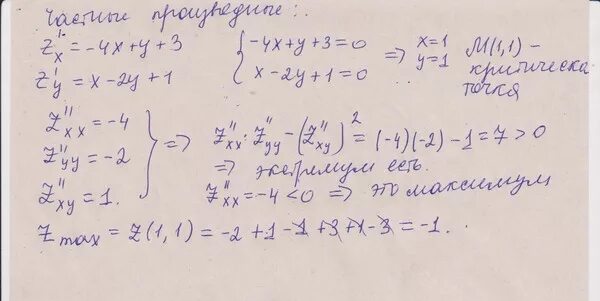 Частные производные:
z'x = -4x+y+3 { -4x+y+3=0 x-2y+1=0 => x=1 y=1 M(1,1) - критическа точка
z'y = x-2y+1
z''xx = -4
z''yy = -2
z''xy = 1.
} => z''xx · z''yy - (z''xy)² = (-4)(-2) - 1 = 7 > 0
=> экстримум есть.
z''xx = -4 < 0 => это максимум
z max = z(1,1) = -2+1-1+3+1-3 = -1.